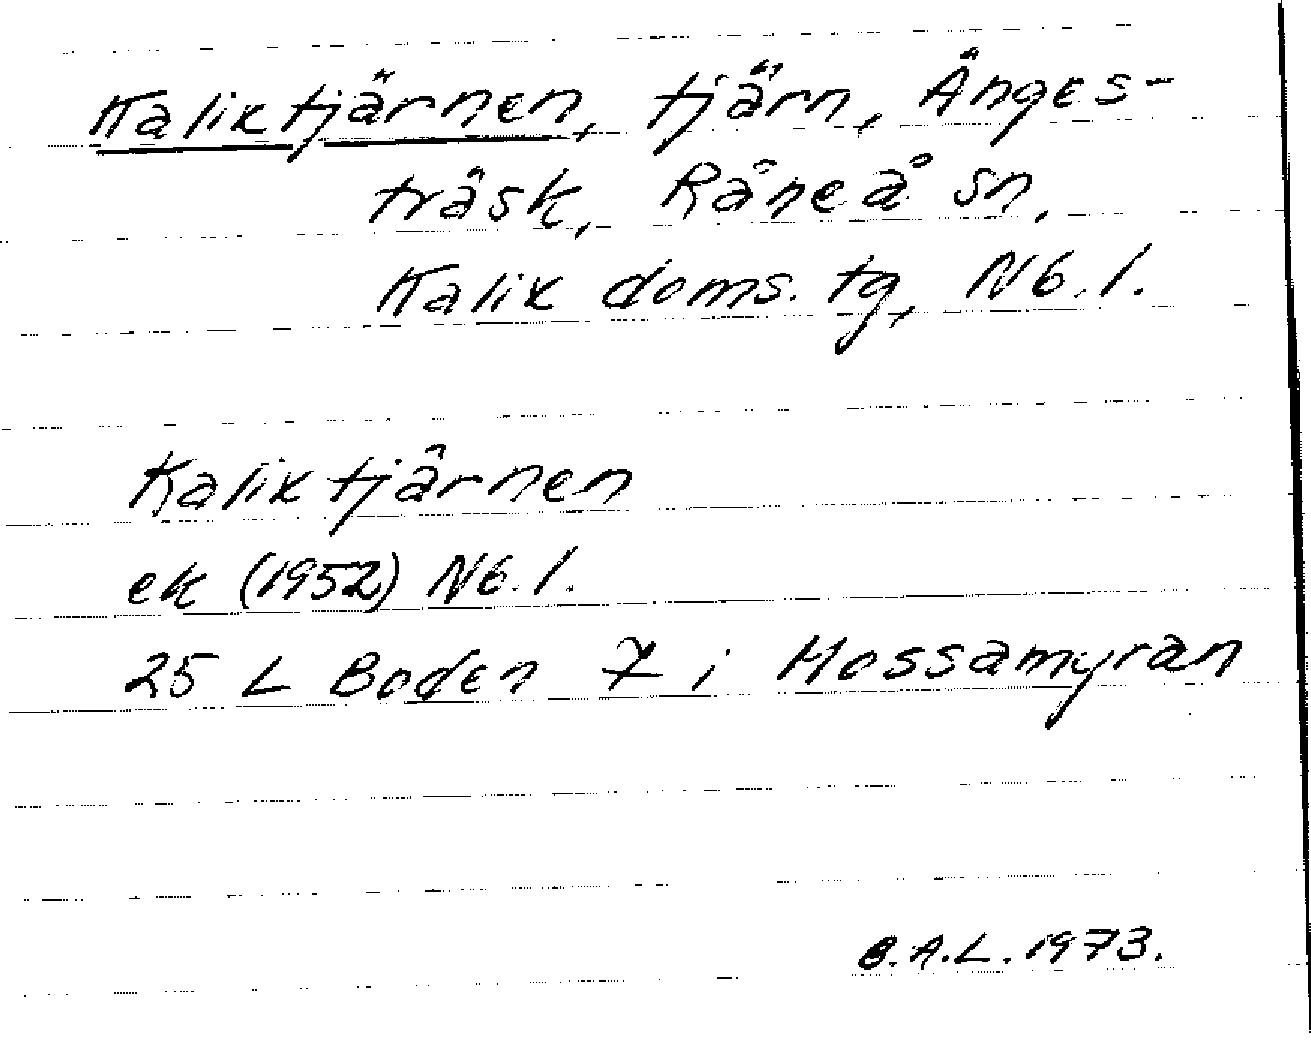 Kalixtjärnen, tjärn, Änges-
träsk, Råneå sn,
Kalix doms. tg, Nb. l.
Kalixtjärnen
ek (1952) Nb. l.
25 L Boden 7 i Mossamyran
A.L. 1973.